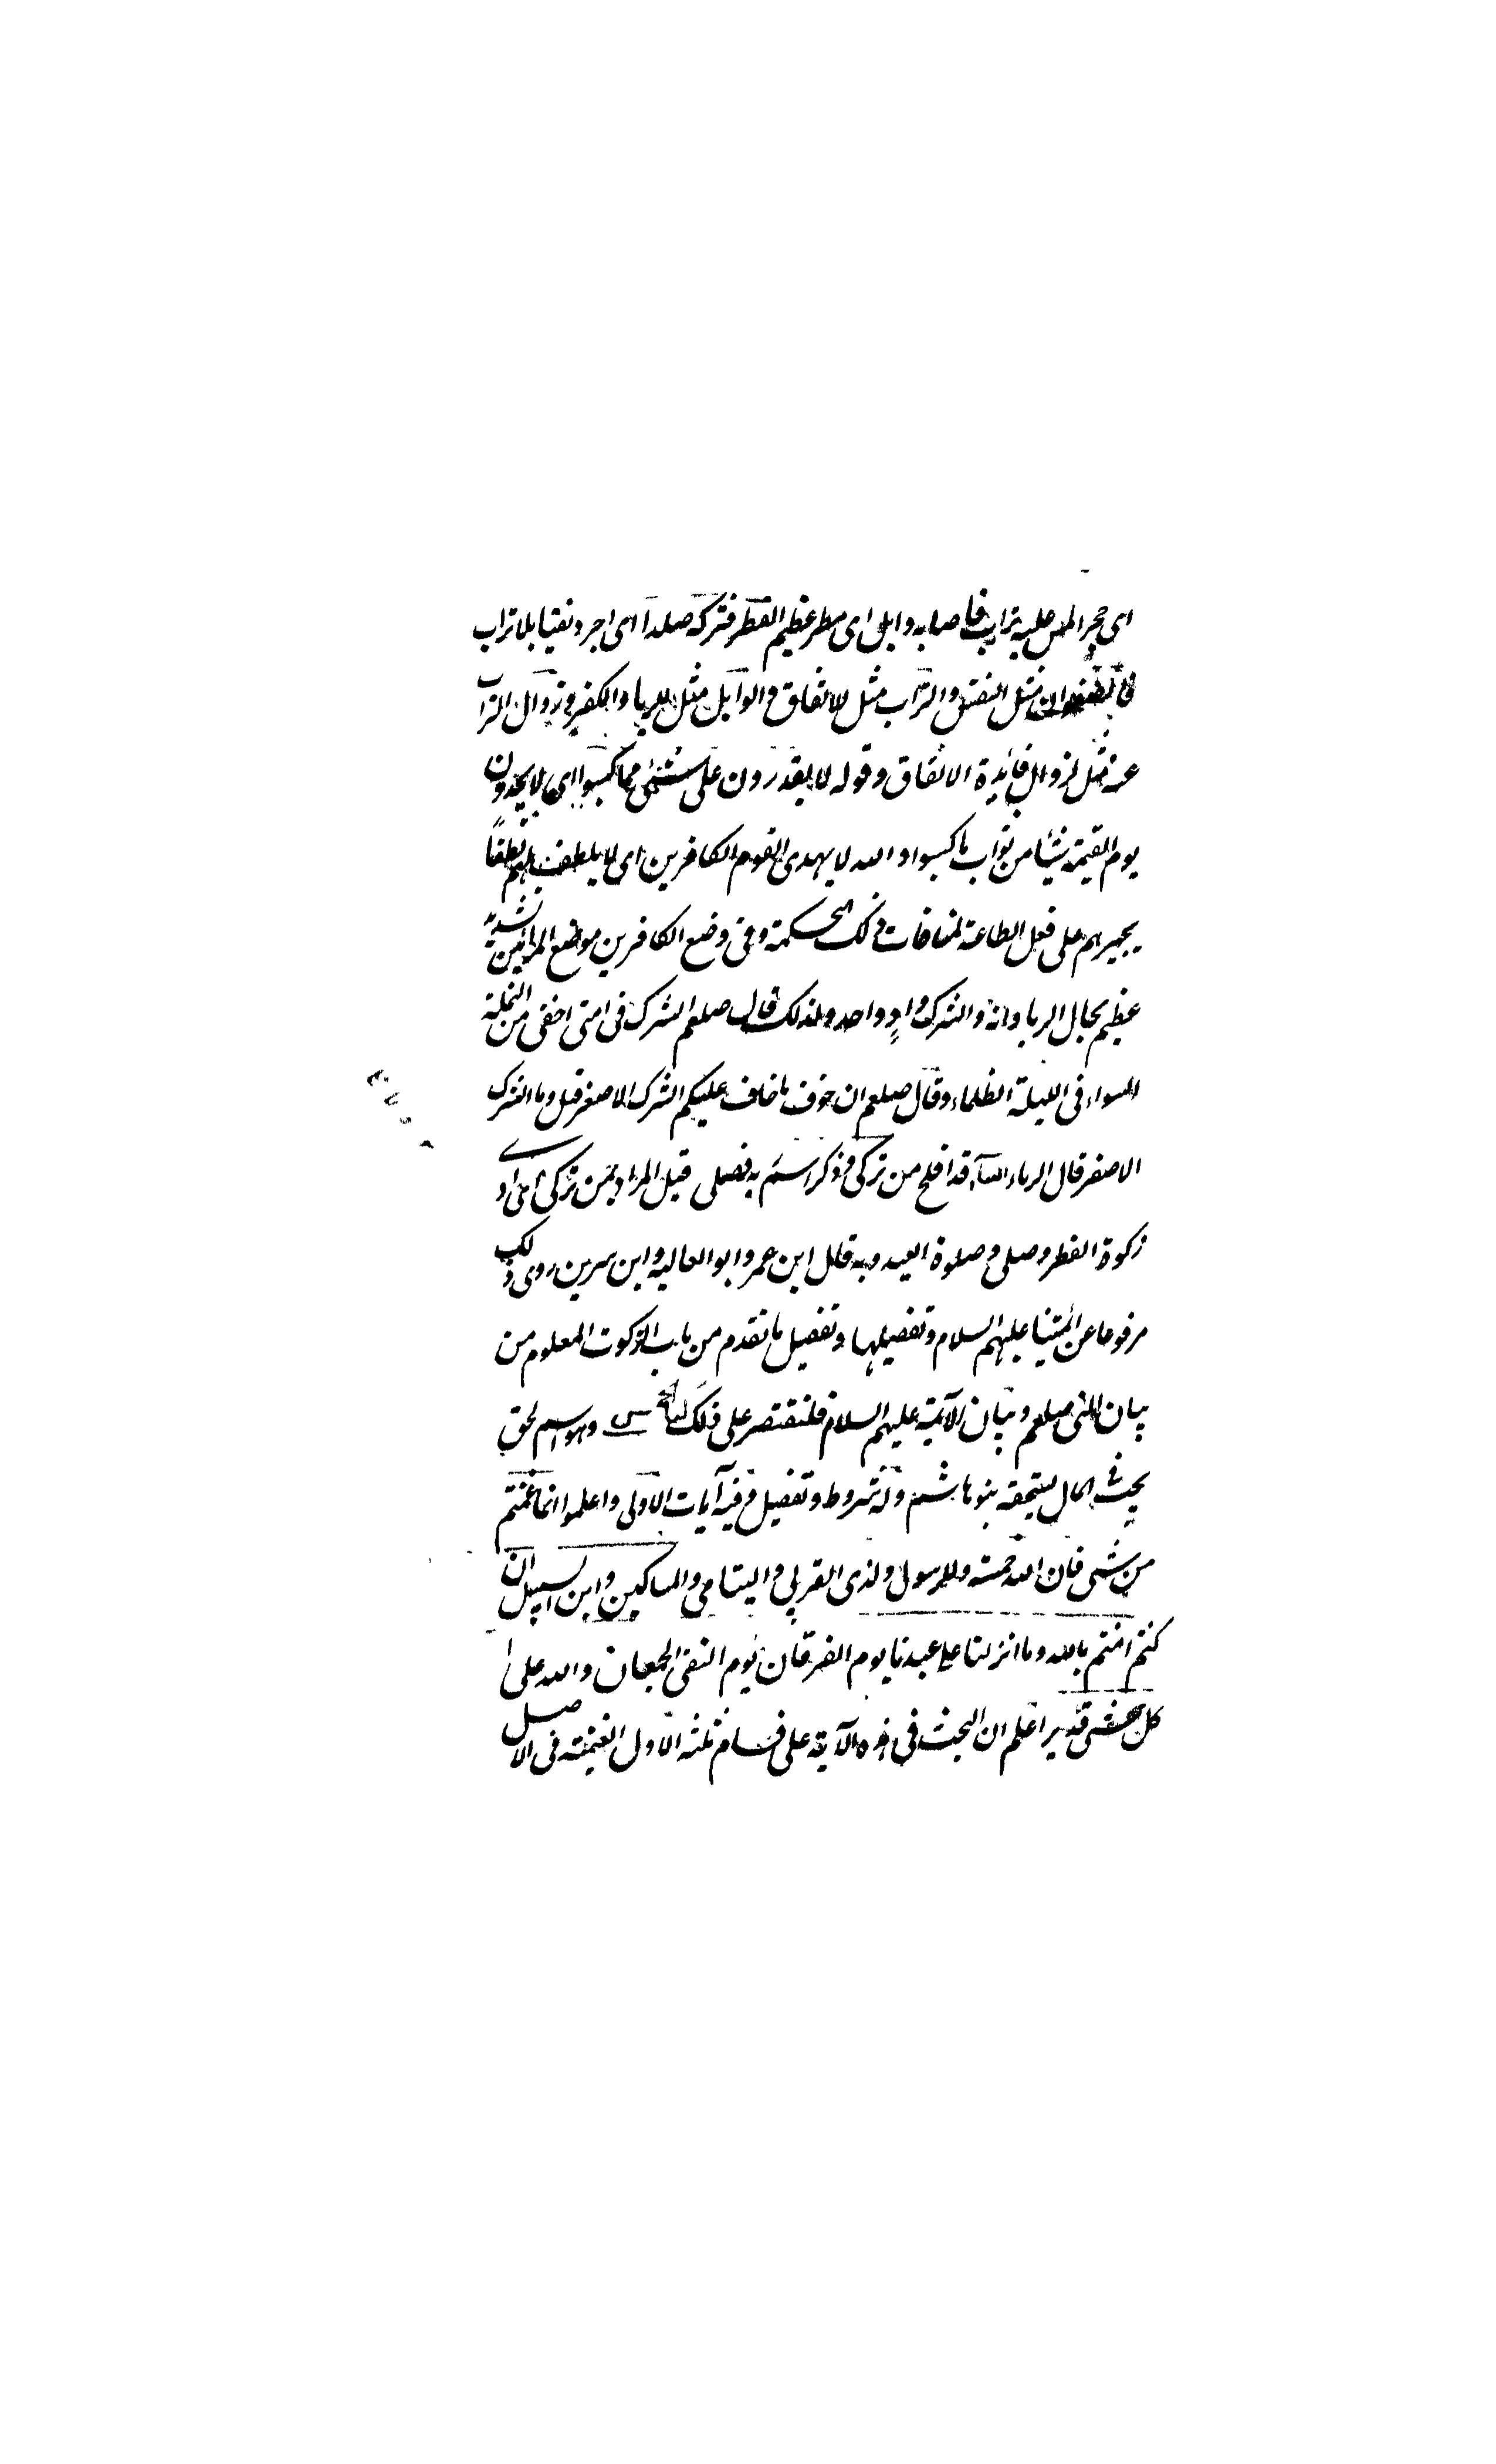 اى حجر املس عليه تراب فاصابه وابل اى مطر عظيم القطر فتركه صلدا اى اجرد نقيا بلا تراب
مثل المنفق والتراب مثل الانفاق والوابل مثل الرياء والكفر وزوال التراب
عنه مثل لزوال فائدة الانفاق وقوله لا يقدرون على شئ مما كسبوا اى لا يجدون
يوم القيمة شيئا من ثواب ما كسبوا والله لا يهدى القوم الكافرين اى لا يلطف بهم لطفا
يجبرهم على فعل الطاعة لمنافات ذلك الحكمة وفى وضع الكافرين موضع المرائين تشديد
عظيم بحال الرياء وانه والشرك واد واحد ولذلك قال صلعم الشرك فى امتى اخفى من النملة
السوداء فى الليلة الظلماء وقال صلعم ان اخوف ما خاف عليكم الشرك الاصغر قيل وما الشرك
الاصغر قال الرياء قد افلح من تزكى وذكر اسم ربه فصلى قيل المراد بمن تزكى اى ادى
زكوة الفطر وصلى صلوة العيد وبه قال ابن عمر وابو العاليه وابن سرين روى ذلك
مرفوعا عن ائمتنا عليهم السلام وتفصيلها وتفصيل ما تقدم من باب الزكوت المعلوم من
بيان النبى صلعم وبيان الائمة عليهم السلام فلنقتصر على ذلك كتاب الخمس وهو اسم لحق
يجب فى المال يستحقه بنو هاشم وله شروط وتفصيل وفيه آيات الاولى واعلموا انما غنمتم
من شئ فان لله خمسه وللرسول ولذى القربى واليتامى والمساكين وابن السبيل ان
كنتم امنتم بالله وما انزلنا على عبدنا يوم الفرقان يوم التقى الجمعان والله على
كل شئ قدير اعلم ان البحث فى هذه الآية على اقسام ثلثه الاول الغنيمة فى الاصل